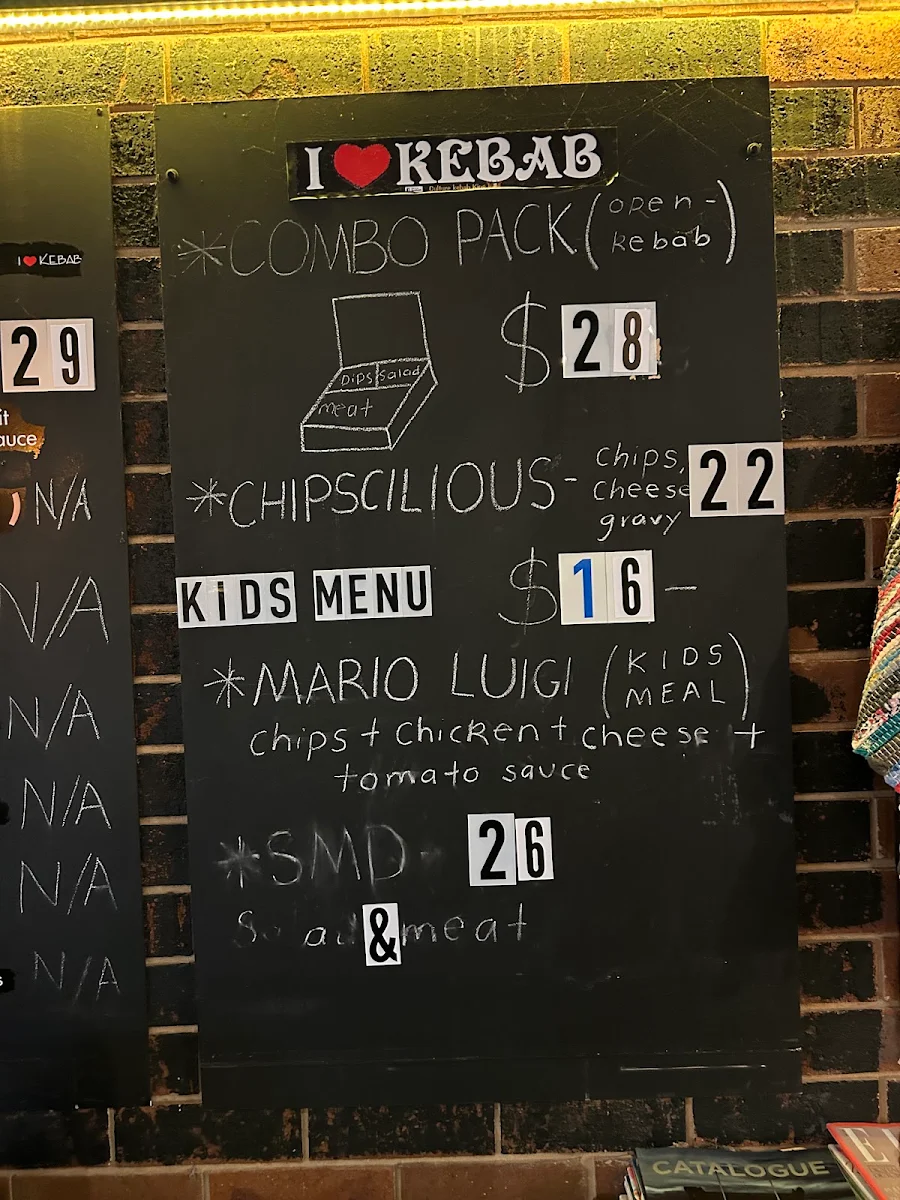 I ❤ KEBAB
*COMBO PACK (open-kebab)
$28
Dips salad
meat
*CHIPSCILIOUS - chips, cheese gravy 22
KiDS MENU $16 —
*MARIO LUIGI (KIDS MEAL)
chips + chicken + cheese +
tomato sauce
*SMD - 26
& meat
I ❤ KEBAB
29
N/A
N/A
N/A
N/A
N/A
N/A
CATALOGUE